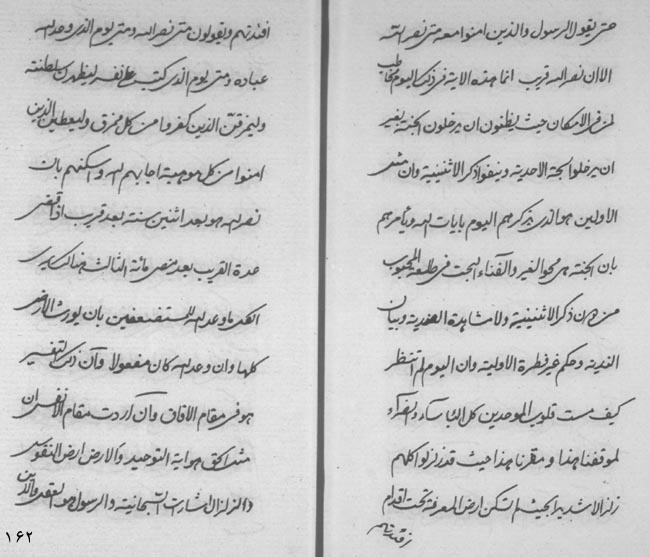 حتی یقول الرسول والذین امنوا معه متی نصر الله
الا ان نصر الله قریب انما هذه الایة فی ذلک الیوم مخاطب
لمن فی الامکان حیث یظنون ان یدخلون الجنة بغیر
ان یدخلوا لجة الاحدیة وینفوا ذکر الاثنینیة وان مثل
الاولین هو الذی یذکرهم الیوم بایات الله ویأمرهم
بان الجنة هی محو الغیر والفناء البحت فی طلعة المحبوب
من دون ذکر الاثنینیة ولا مشاهدة الضدیة وبیان
الندیة وحکم غیر فطرة الاولیة وان الیوم لم انتظر
کیف مست قلوب الموحدین کل البأساء والضراء
لموقفنا هذا و مقرنا هذا حیث قد زلزلوا کلهم
زلزالا شدیدا بحیث لم تسکن ارض المعرفة تحت اقدام
افئدتهم
افئدتهم ویقولون متی نصر الله ومتی یوم الذی وعد الله
عباده ومتی یوم الذی کتب علی نفسه لیظهرن سلطنته
ولیمزقن الذین کفروا من کل ممزق ولیعطین الذین
امنوا من کل موهبة اجابهم الله واسکنهم بان
نصر الله هو بعد اثنین سنة بعد قریب اذا قضی
عدة القریب بعد مضی مائة الثالث هنالک
الله ما وعد الله للمستضعفین بان یورث الارض
کلها وان وعد الله کان مفعولا وان ذلک التفسیر
هو فی مقام الافاق وان اردت مقام الانفس ان
مثل الحق هو ایة التوحید والارض ارض النفوس
والزلزال اشارات السبحانیة والرسول هو العقل والذین
۱۶۲